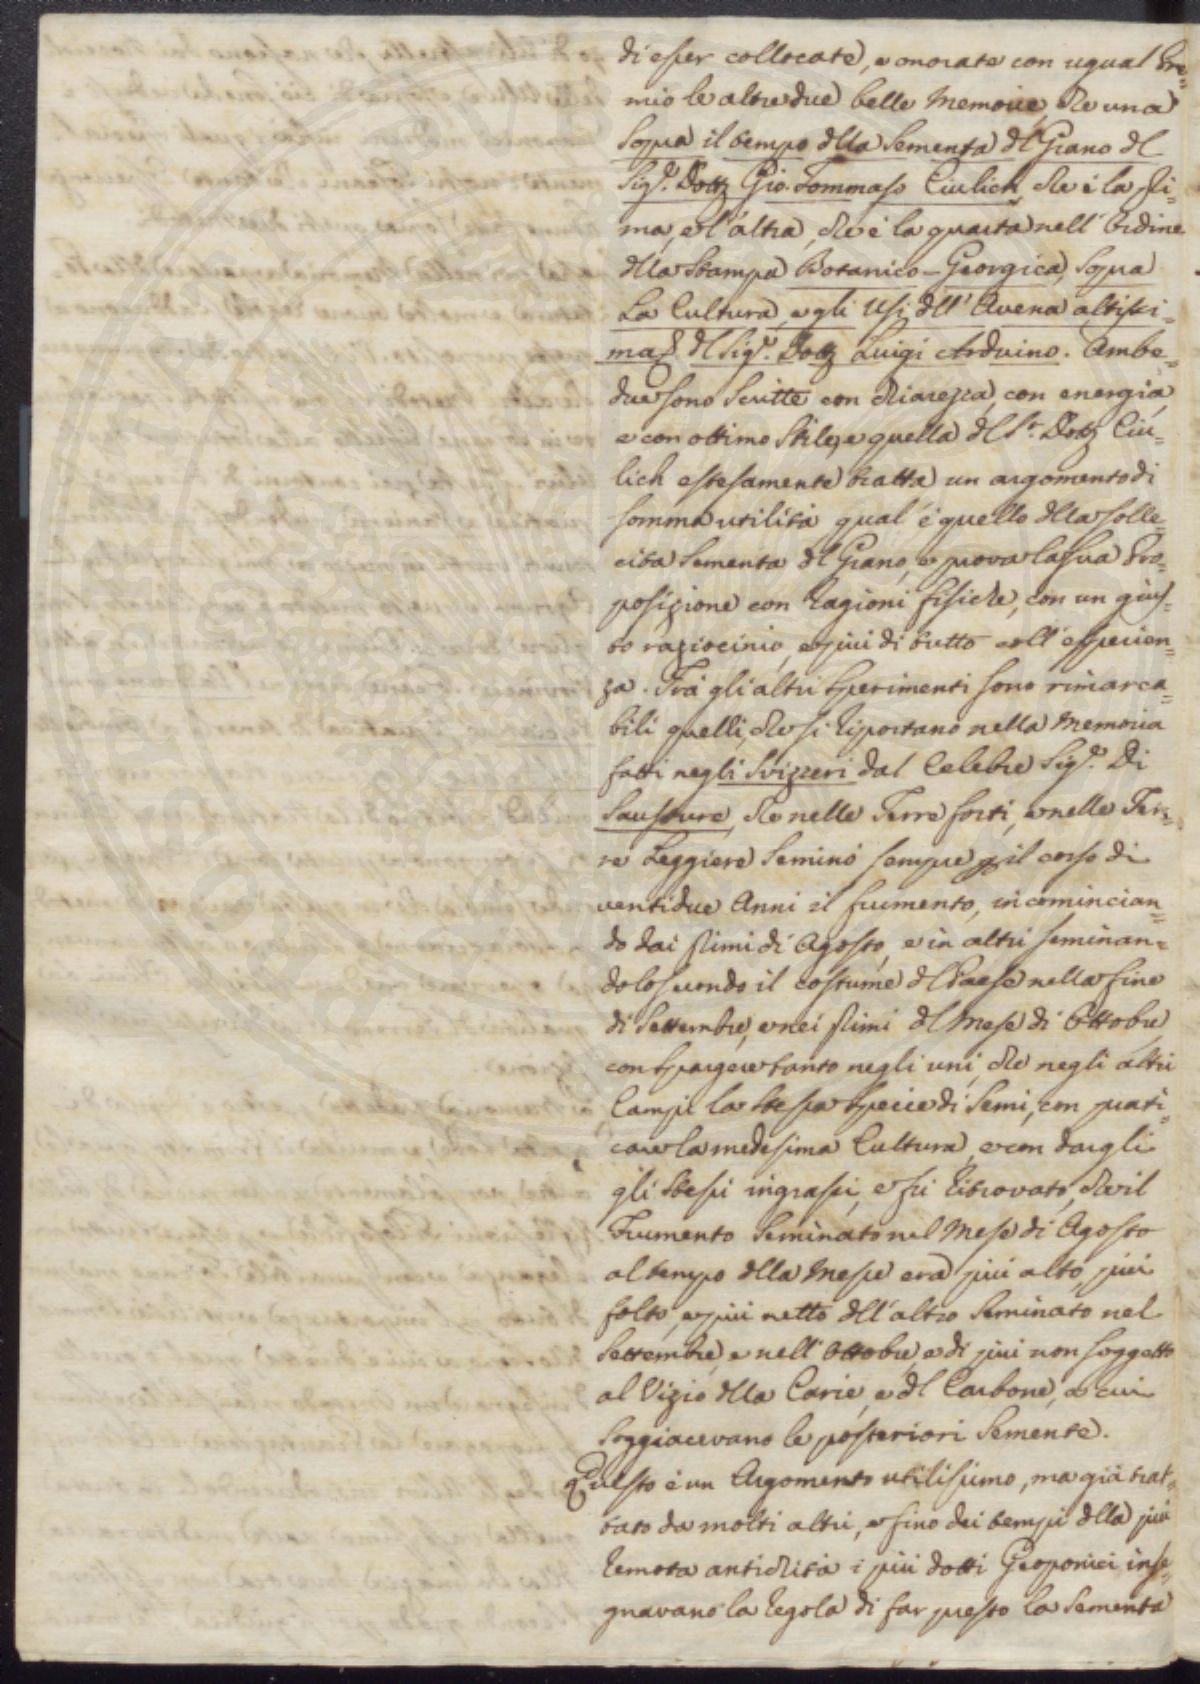 di esser collocate, e onorate con ugual Pre=
mio le altre due belle Memorie, che una
Sopra il tempo della Sementa del Grano del
Sig.r Dott. Gio. Tommaso Ciulich, che è la pri=
ma, e l'altra, che è la quarta nell'Ordine
della Stampa Botanico-Georgica, Sopra
La Cultura, e gli Usi dell'Avena altissi=
ma del Sig.r Dott. Luigi Arduino. Ambe=
due sono Scritte con chiarezza, con energia,
e con ottimo Stile, e quella del S.r Dott. Ciu=
lich estesamente tratta un argomento di
somma utilità, qual'è quello della solle=
cita Sementa del Grano, e prova la sua Pro=
posizione con Ragioni fisiche, con un gius=
to raziocinio, e più di tutto coll'esperien=
za. Frà gli altri Sperimenti sono rimarca=
bili quelli, che si Riportano nella Memoria
fatti negli Svizzeri dal Celebre Sig.r Di
Saussure, che nelle Terre forti, e nelle Ter=
re Leggiere Seminò sempre per il corso di
ventidue Anni il frumento, incomincian=
do dai primi di Agosto, e in altri seminan=
dolo secondo il costume del Paese nella fine
di Settembre, e nei primi del Mese di Ottobre
con Spargere tanto negli uni, che negli altri
Campi la Stessa Specie di Semi, con prati=
care la medesima Cultura, e con dargli
gli Stessi ingrassi, e fù Ritrovato, che il
Frumento Seminato nel Mese di Agosto
al tempo della Messe era più alto, più
folto, e più netto dell'altro Seminato nel
Settembre, e nell'Ottobre, e di più non soggetto
al Vizio della Carie, e del Carbone, a cui
Soggiacevano le posteriori Semente.
Questo è un Argomento utilissimo, ma già trat=
tato da molti altri, e fino dei tempi della più
Remota antichità i più dotti Geoponici inse=
gnavano la Regola di far presto la Sementa